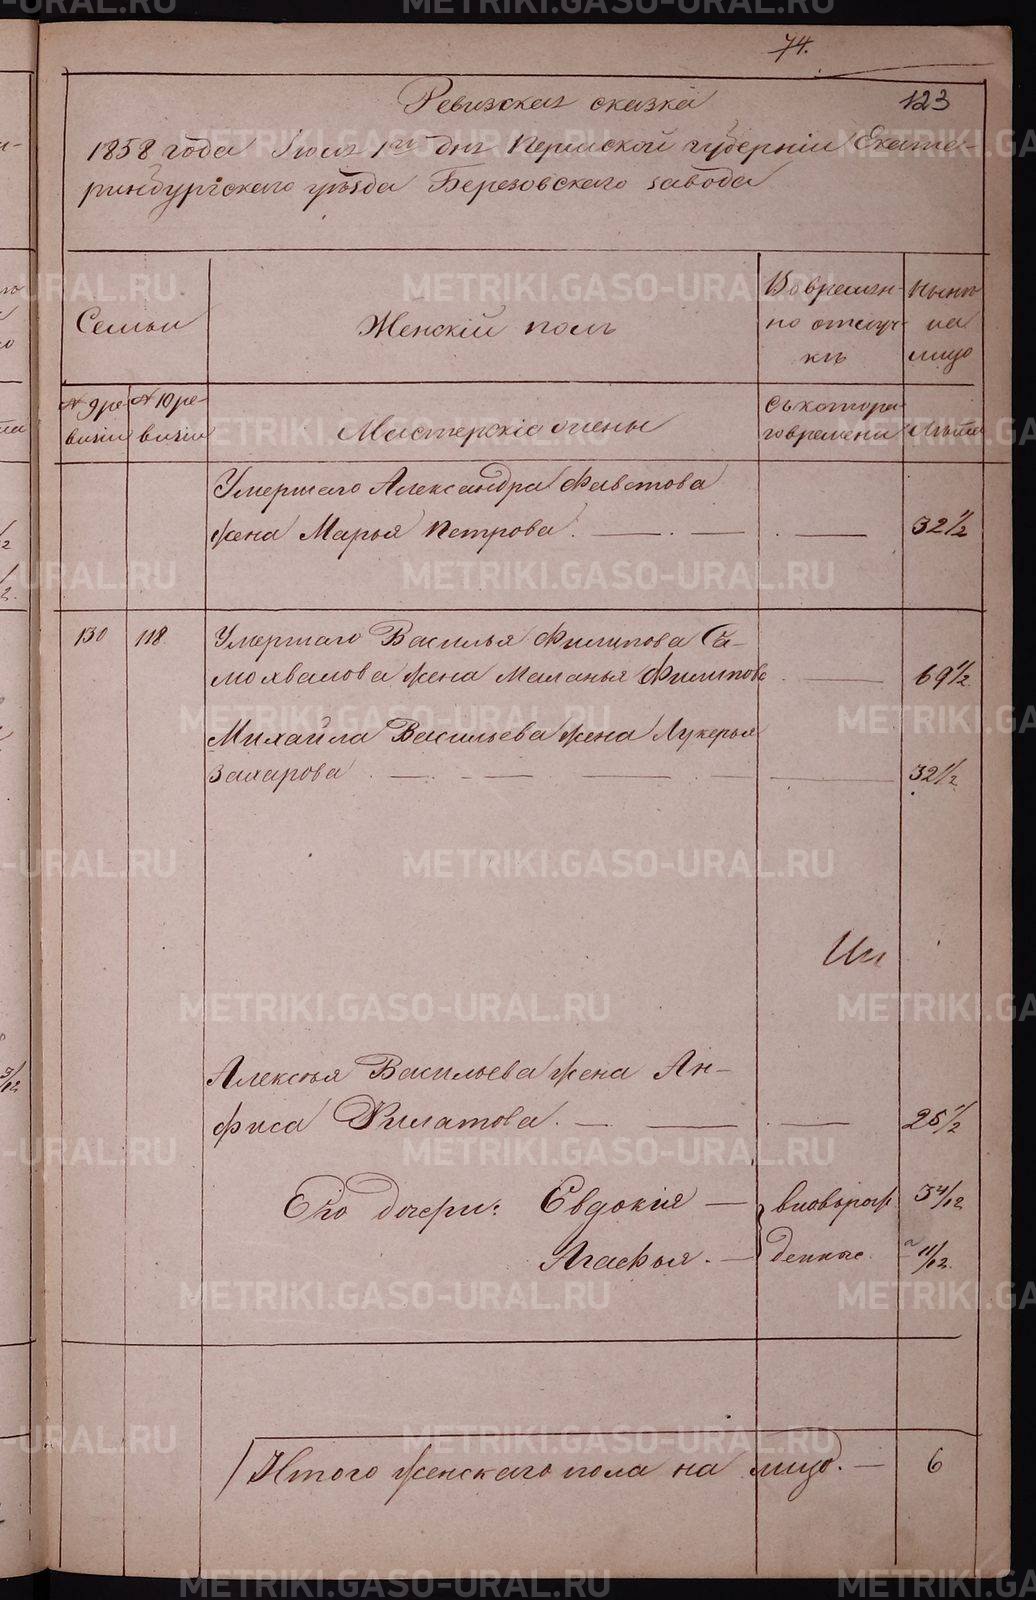 74.
123
Ревизская сказка
1858 года Іюля 1го дня Пермской губерніи Екате-
ринбургскаго уѣзда Березовскаго завода
Семьи
Женскій полъ
Во времен-
но отлуч-
кѣ
Нынѣ
на
лицо
№ 9 ре-
визіи
№ 10 ре-
визіи
Мастерскіе жены
Съ котора-
го времени
Лѣта
Умершаго Александра Фавстова
жена Марья Петрова. — — . —
32 1/2
130
118.
Умершаго Василья Филипова Са-
мохвалова жена Маланья Филипова —
69 1/2
Михайла Васильева жена Лукерья
Захарова . — — — —
32 1/2
Алексѣя Васильева жена Ан-
фиса Филатова. — — . —
25 1/2
Его дочери: Евдокія — вновьрож-
3 4/12
Агафья. — денные.
11/12
Итого женскаго пола на лицо. —
6
METRIKI.GASO-URAL.RU